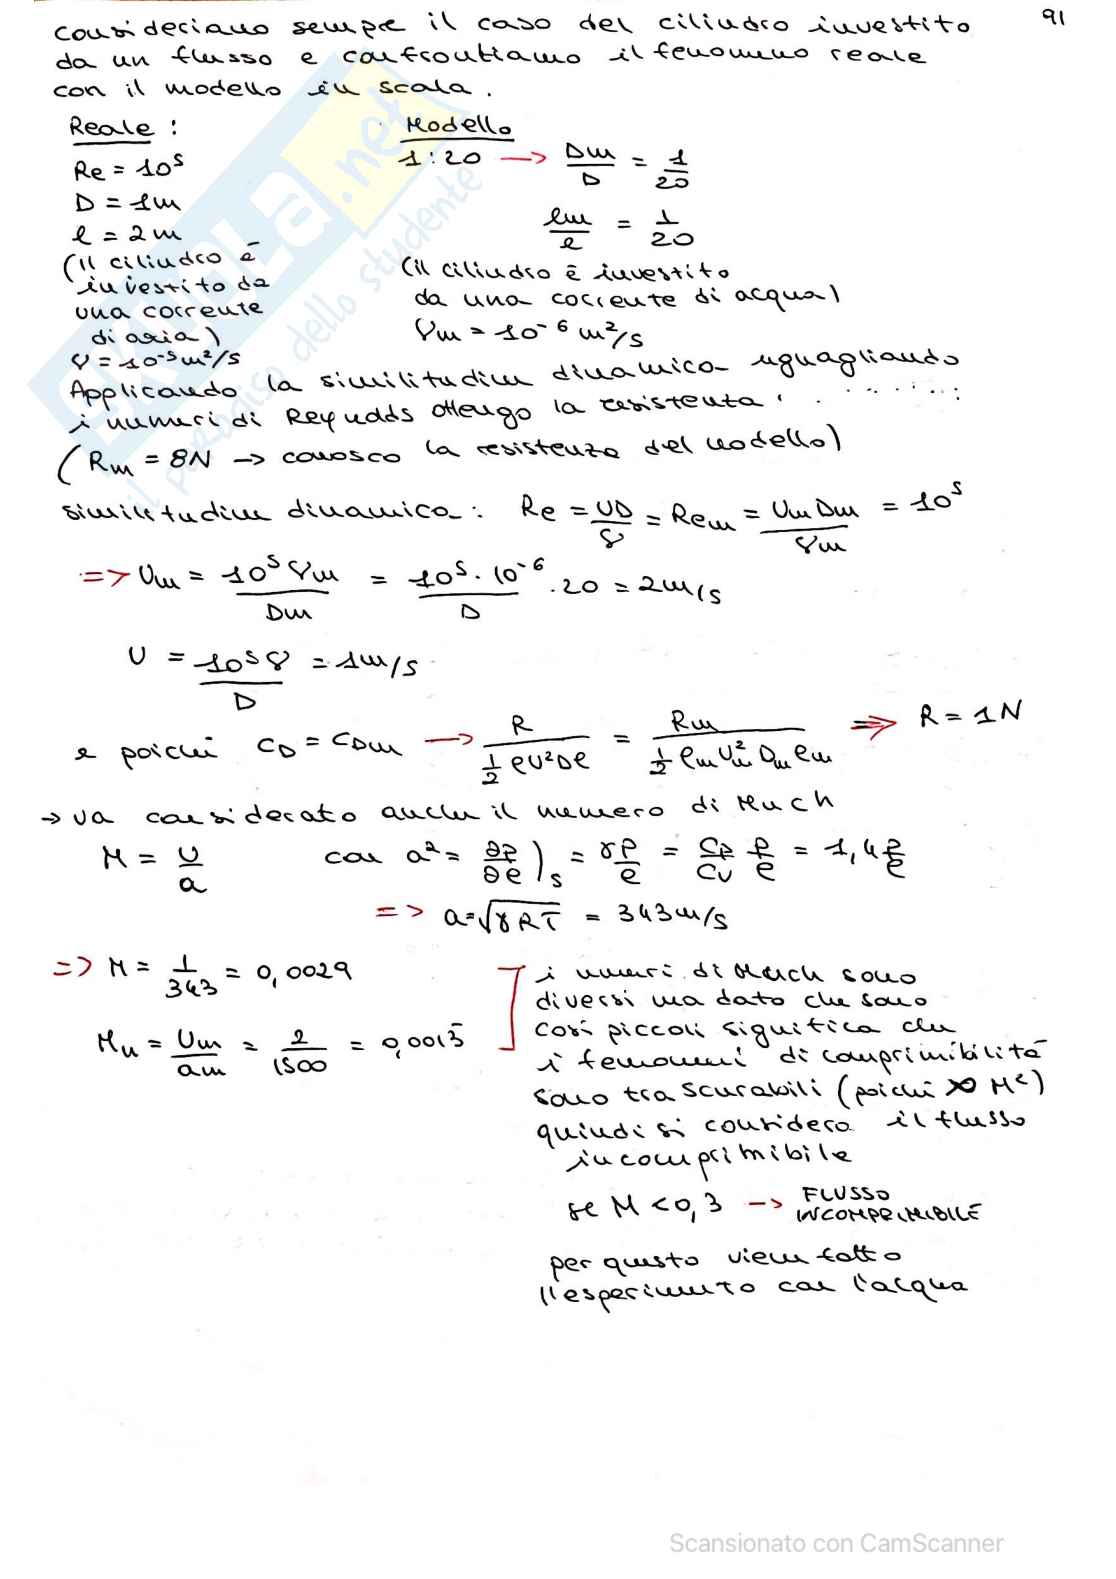 91
consideriamo sempre il caso del cilindro investito
da un flusso e confrontiamo il fenomeno reale
con il modello in scala.
Reale:
Re = 10⁵
D = 1m
l = 2m
(Il cilindro è
investito da
una corrente
di aria)
ν = 10⁻⁵ m²/s
Modello
1:20 → Dm/D = 1/20
lm/l = 1/20
(il cilindro è investito
da una corrente di acqua)
νm = 10⁻⁶ m²/s
Applicando la similitudine dinamica uguagliando
i numeri di Reynolds ottengo la resistenza
(Rm = 8N → conosco la resistenza del modello)
similitudine dinamica: Re = UD/ν = Rem = UmDm/νm = 10⁵
=> Um = 10⁵νm/Dm = 10⁵·10⁻⁶/D · 20 = 2m/s
U = 10⁵ν/D = 1m/s
e poiché CD = CDm → R/(½ρU²Dl) = Rm/(½ρmUm²Dmlm) => R = 1N
→ va considerato anche il numero di Mach
M = U/a con a² = ∂p/∂ρ)s = γp/ρ = Cp/Cv p/ρ = 1,4 p/ρ
=> a = √γRT = 343m/s
=> M = 1/343 = 0,0029
Mm = Um/am = 2/1500 = 0,0013
i numeri di Mach sono
diversi ma dato che sono
così piccoli significa che
i fenomeni di comprimibilità
sono trascurabili (poiché ∝ M²)
quindi si considera il flusso
incomprimibile
se M < 0,3 → FLUSSO
INCOMPRIMIBILE
per questo viene fatto
l'esperimento con l'acqua
SKUOLA.net
il paradiso dello studente
Scansionato con CamScanner